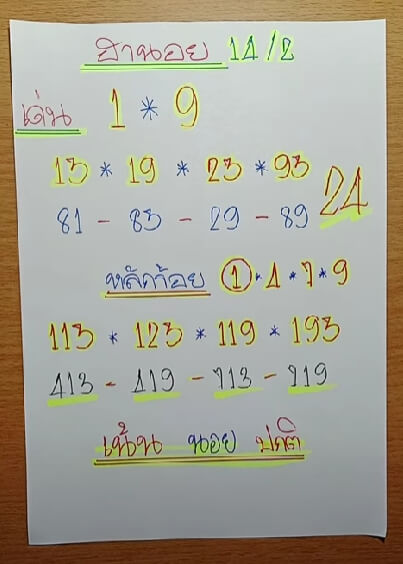 ฮานอย 14/2
เด่น 1 * 9
13 * 19 * 23 * 93
24
81 - 83 - 29 - 89
หลักร้อย 1 * 4 * 7 * 9
113 * 123 * 119 * 193
413 - 419 - 713 - 719
เน้น นอย ปกติ